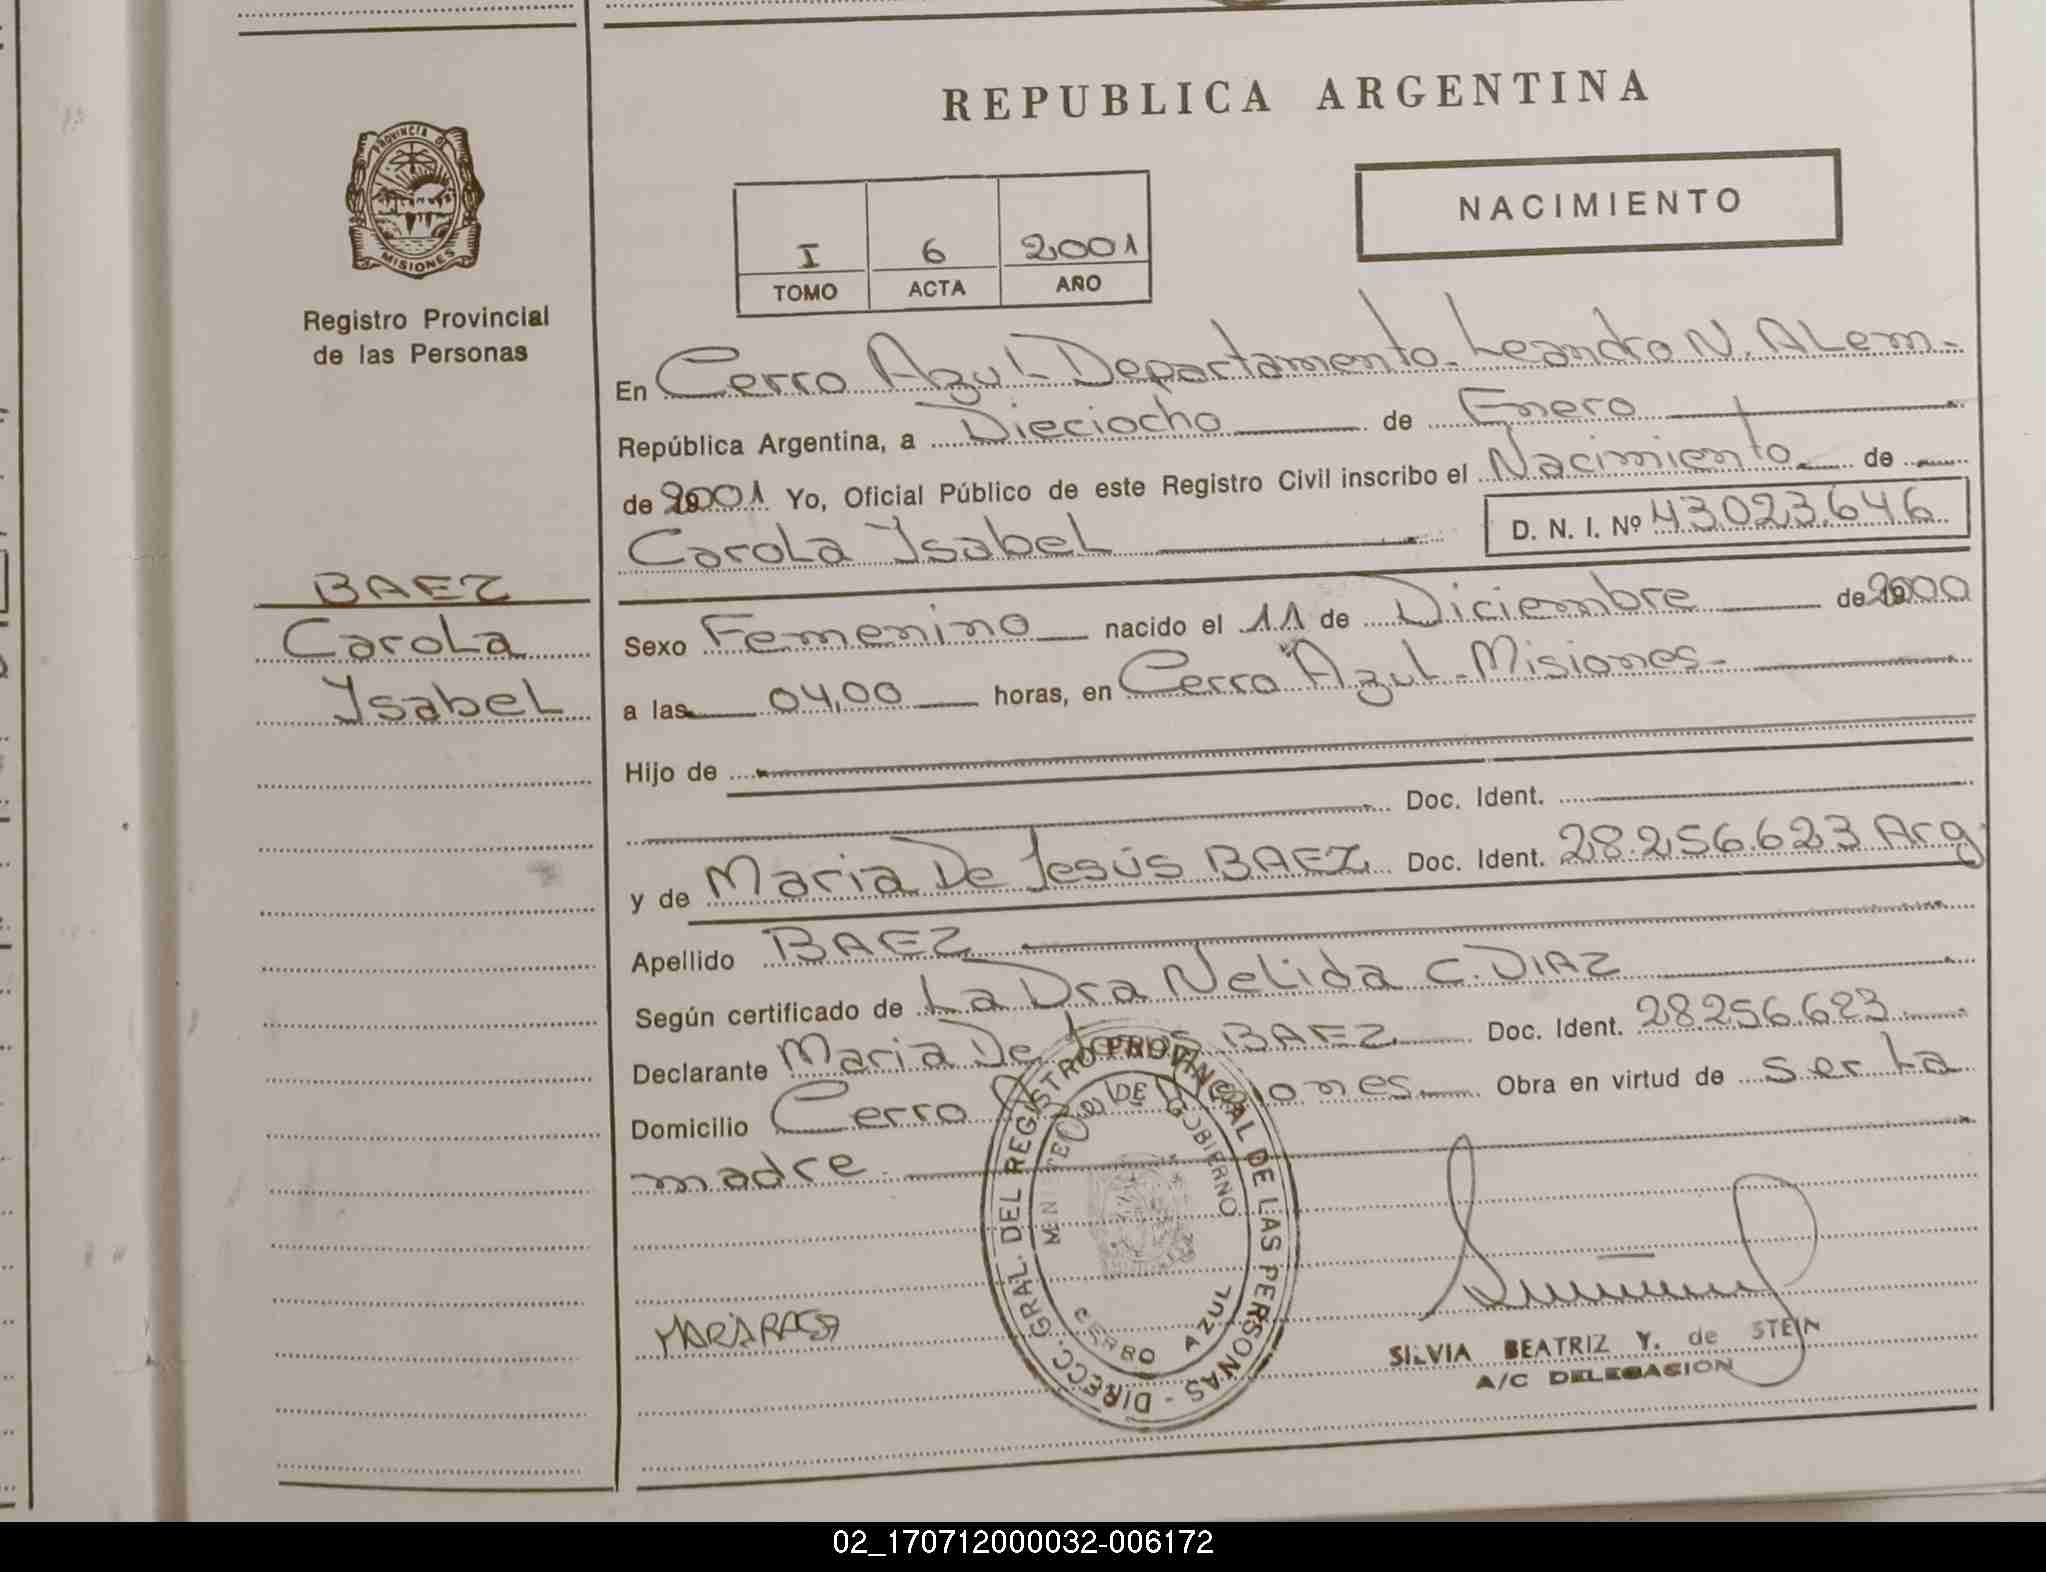 REPUBLICA ARGENTINA
PROVINCIA DE
MISIONES
Registro Provincial
de las Personas
NACIMIENTO
I 6 2001
TOMO ACTA AÑO
En Cerro Azul - Departamento - Leandro N. ALem -
República Argentina, a Dieciocho de Enero
de 2001 Yo, Oficial Público de este Registro Civil inscribo el Nacimiento de
Carola Ysabel D. N. I. Nº 43.023.646
BAEZ
Carola
Ysabel
Sexo Femenino nacido el 11 de Diciembre de 2000
a las 04,00 horas, en Cerro Azul - Misiones -
Hijo de
Doc. Ident.
y de Maria De Jesús BAEZ Doc. Ident. 28.256.623 Arg
Apellido BAEZ
Según certificado de La Dra Nelida C. DIAZ
Declarante Maria De Jesus BAEZ Doc. Ident. 28256.623
Domicilio Cerro Obra en virtud de ser La
madre
DIRECC. GRAL. DEL REGISTRO PROVINCIAL DE LAS PERSONAS -
DE GOBIERNO
CERRO AZUL
SILVIA BEATRIZ Y. de STEIN
A/C DELEGACION
02_170712000032-006172